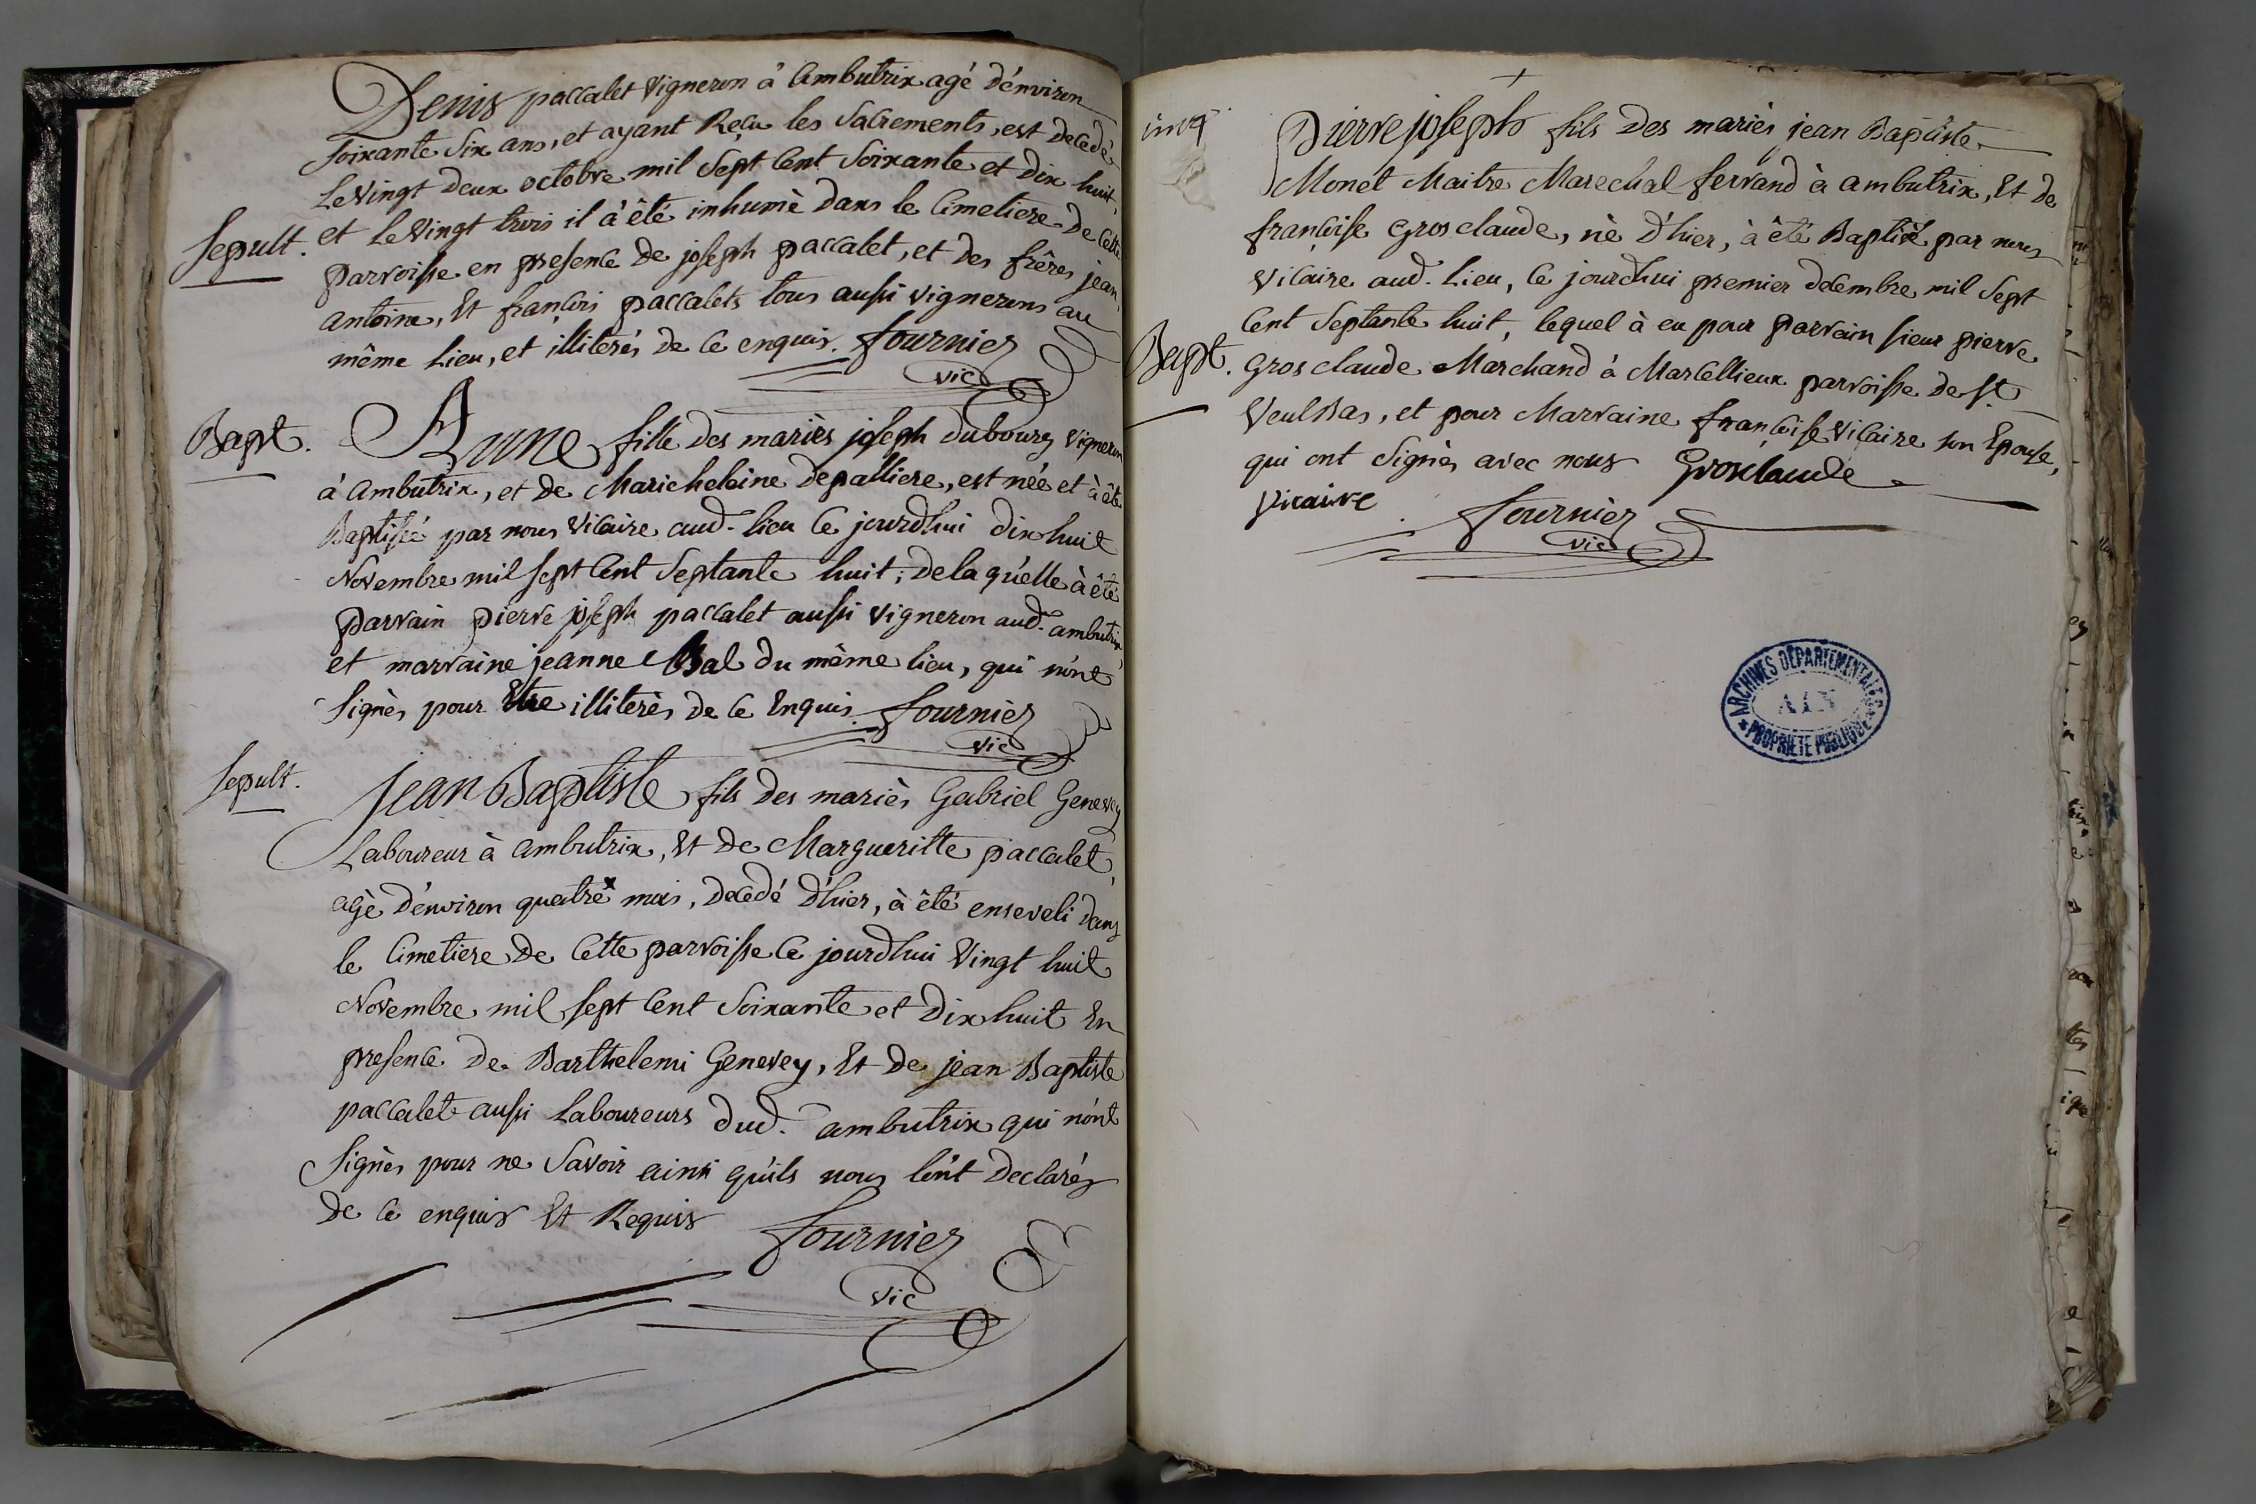 Denis paccalet Vigneron à Ambutrix agé d'environ
soixante Six ans, et ayant Reçu les Sacrements, est decedé
Le Vingt deux octobre mil Sept Cent Soixante et dix huit,
Sepult. et Le Vingt trois il à êté inhumè dans le Cimetiere De Cette
parroisse en presence de joseph paccalet, et des frêres jean,
antoine, Et françois paccalets tous aussi vignerons au
même Lieu, et illiterés de ce enquis. fournier
vic
Bapt. Anne fille des mariès joseph dubourg Vigneron
à Ambutrix, et de Marie heleine depalliere, est née et à êté
Baptisée par nous Vicaire aud. lieu Ce jourd'hui dix huit
Novembre mil sept Cent Septante huit; de laq'uelle à êté
Parrain pierre joseph paccalet aussi Vigneron aud. ambutrix,
et marraine jeanne Bal du même lieu, qui n'ont
Signès pour Etre illiterès de ce Enquis. fournier
vic
Sepult. Jean Baptiste fils des mariès Gabriel Genevey
Laboureur à ambutrix, Et de Margueritte paccalet,
agè d'environ quatre mois, decedé d'hier, à êté enseveli dans
le Cimetiere de Cette parroisse Ce jourdhui Vingt huit
Novembre mil sept Cent Soixante et dix huit En
presence de Barthelemi Genevey, Et de jean Baptiste
paccalet aussi Laboureurs dud. ambutrix qui n'ont
Signès pour ne Savoir ainsi qu'ils nous l'ont declarés
de ce enquis Et Requis fournier
vic
Pierre joseph fils des mariès jean Baptiste
Monet Maitre Marechal ferrand à ambutrix, Et de
françoise Gros claude, nè d'hier, à êté Baptisè par nous
Vicaire aud. Lieu, Ce jourdhui premier decembre mil Sept
Cent Septante huit, lequel à eu pour parrain sieur pierre
Bapt. Gros claude Marchand à Marcellieux parroisse de St.
Veulbas, et pour Marraine françoise Vicaire son Epouse,
qui ont Signès avec nous Grosclaude
vicaire fournier
vic
ARCHIVES DÉPARTEMENTALES
AIN
PROPRIÉTÉ PUBLIQUE